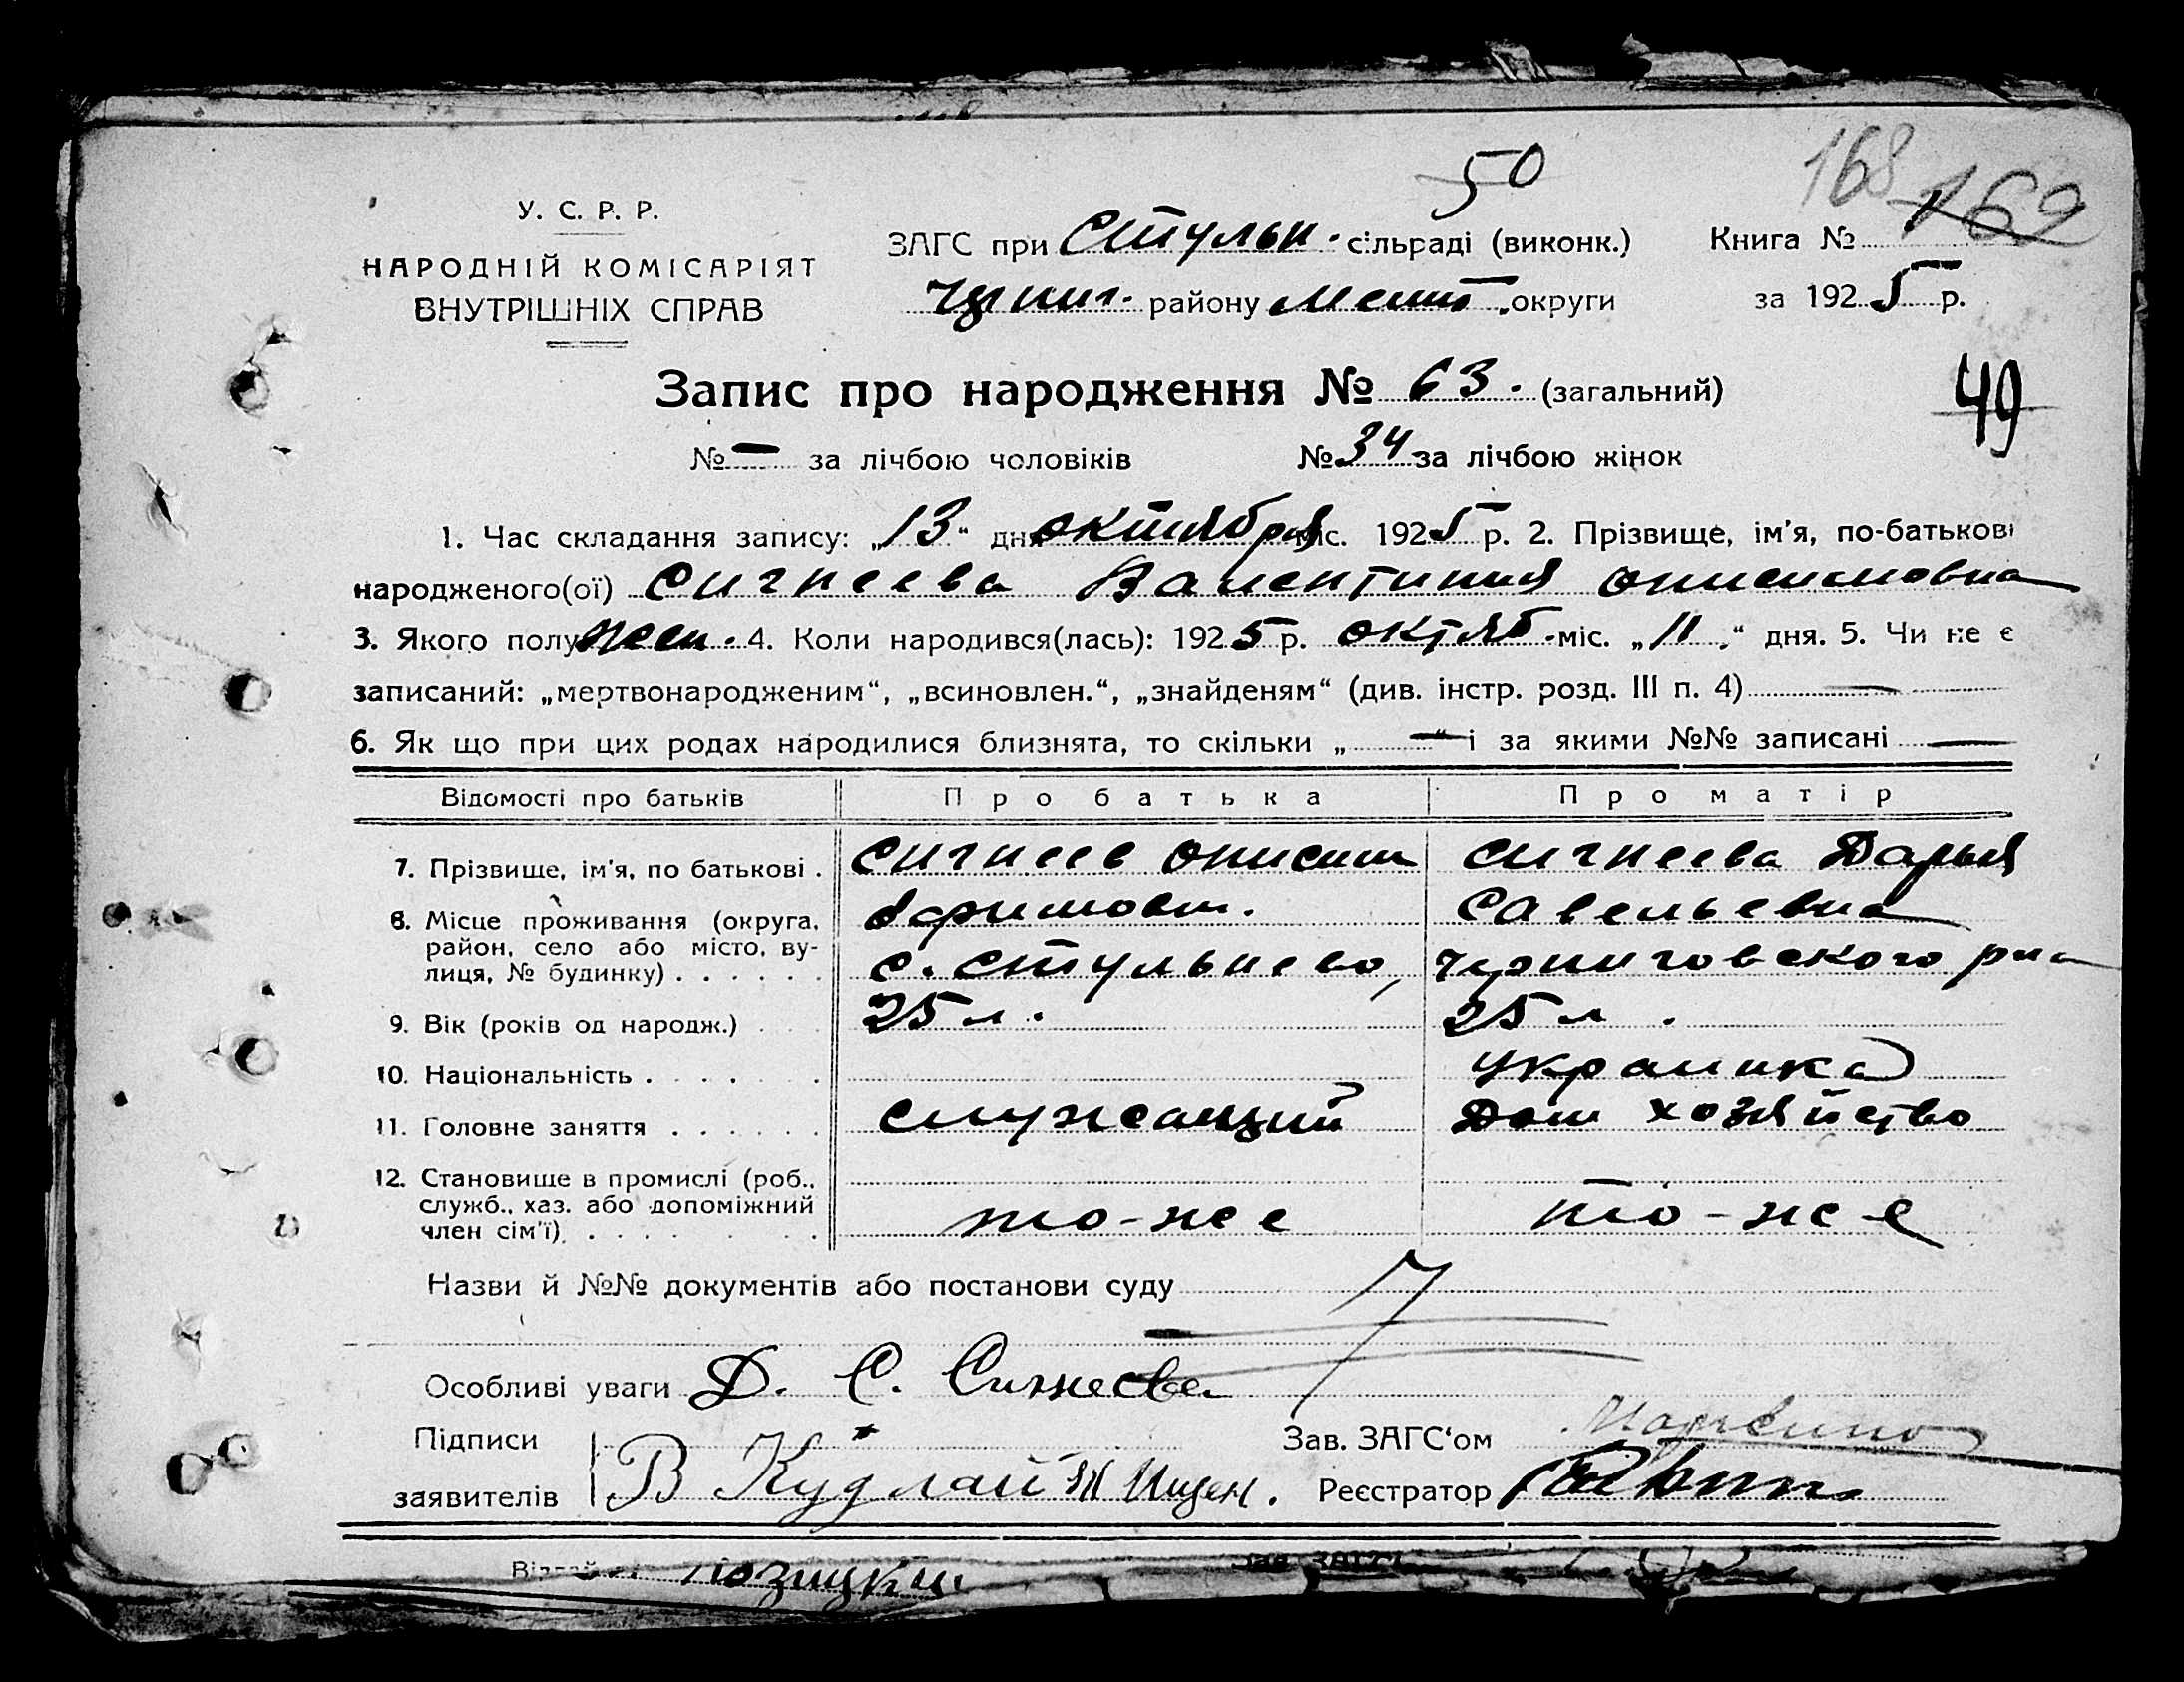 50
168 169
У. С. Р. Р.
НАРОДНІЙ КОМІСАРІЯТ
ВНУТРІШНІХ СПРАВ
ЗАГС при Стульн. сільраді (виконк.) Книга №
Черниг. району Мелит. округи за 1925 р.
Запис про народження № 63. (загальний)
49
№ — за лічбою чоловіків № 34 за лічбою жінок
1. Час складання запису: „13“ дня октября міс. 1925 р. 2. Прізвище, ім'я, по-батькові
народженого(ої) Сигнеева Валентиния Онисимовна
3. Якого полу жен. 4. Коли народився(лась): 1925 р. октяб. міс. „11“ дня. 5. Чи не є
записаний: „мертвонародженим“, „всиновлен.“, „знайденям“ (див. інстр. розд. III п. 4) —
6. Як що при цих родах народилися близнята, то скільки „—“ і за якими №№ записані —
Відомості про батьків Про батька Про матір
7. Прізвище, ім'я, по батькові . Сигнеев Онисим Сигнеева Дарья
8. Місце проживання (округа, Савельевна
район, село або місто, ву-
лиця, № будинку) . . . . . . с. Стульнево, Черниговского р-на
9. Вік (років од народж.) . . . 25 л. 25 л.
10. Національність . . . . . . украинка
11. Головне заняття . . . . . . служащий Дом хозяйство
12. Становище в промислі (роб.,
служб., хаз. або допоміжний
член сім'ї) . . . . . . то-же то-же
Назви й №№ документів або постанови суду
Особливі уваги Д. С. Сигнеева
Підписи Зав. ЗАГС‘ом
заявителів В Кудлай Ж Ищен. Реєстратор